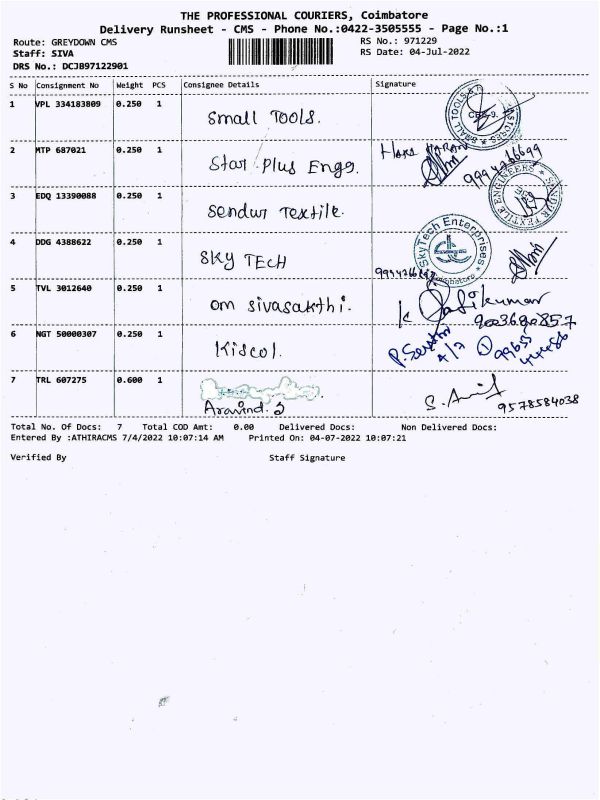 THE PROFESSIONAL COURIERS, Coimbatore
Delivery Runsheet - CMS - Phone No.:0422-3505555 - Page No.:1
Route: GREYDOWN CMS
RS No.: 971229
Staff: SIVA
RS Date: 04-Jul-2022
DRS No.: DCJB97122901
S No Consignment No Weight PCS Consignee Details Signature
1 VPL 334183809 0.250 1 Small TOOLS.
2 MTP 687021 0.250 1 Star Plus Engg. HARI HARAN 9994266699
3 EDQ 13390088 0.250 1 Sendur Textile. SENDUR TEXTILE ENGINEERS
4 DDG 4388622 0.250 1 SKY TECH SkyTech Enterprises
5 TVL 3012640 0.250 1 om sivasakthi.
6 NGT 50000307 0.250 1 Kiscol.
7 TRL 607275 0.600 1 Aravind. S 9578584038
Total No. Of Docs: 7 Total COD Amt: 0.00 Delivered Docs: Non Delivered Docs:
Entered By :ATHIRACMS 7/4/2022 10:07:14 AM Printed On: 04-07-2022 10:07:21
Verified By Staff Signature